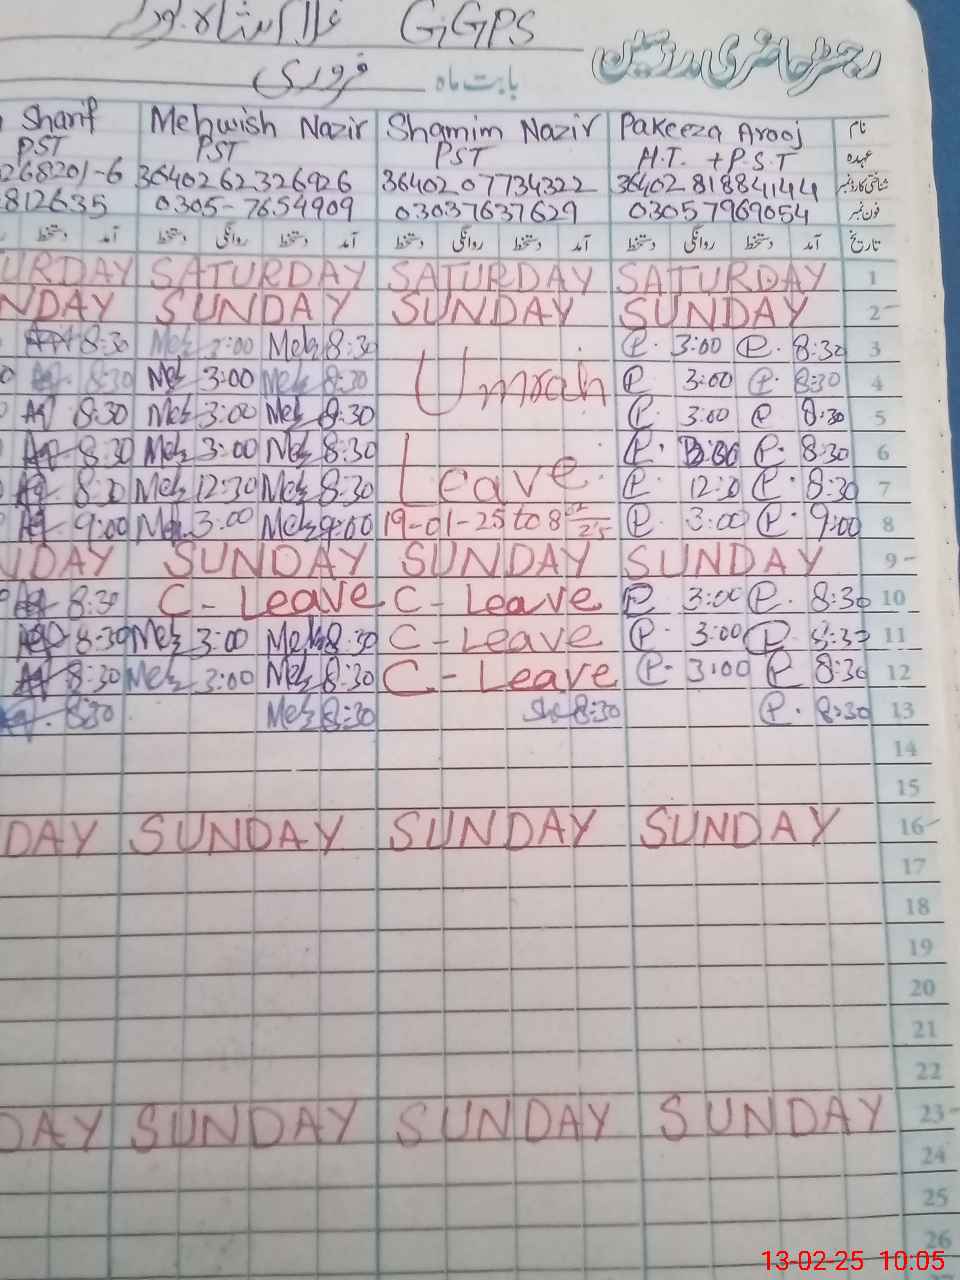 GGPS
رجسٹر حاضری مدرسین
بابت ماہ فروری
Sharif Mehwish Nazir Shamim Nazir Pakeeza Arooj نام
PST PST PST H.T. + P.S.T عہدہ
268201-6 3640262326926 3640207734322 3640281884144 شناختی کارڈ نمبر
812635 0305-7654909 03037637629 03057969054 فون نمبر
دستخط آمد دستخط روانگی دستخط آمد دستخط روانگی دستخط آمد دستخط روانگی دستخط آمد تاریخ
URDAY SATURDAY SATURDAY SATURDAY 1
NDAY SUNDAY SUNDAY SUNDAY 2
8:30 Meh 3:00 Meh 8:30 P. 3:00 P. 8:30 3
8:30 Meh 3:00 Meh 8:30 Umrah P 3:00 P. 8:30 4
8:30 Meh 3:00 Meh 8:30 P 3:00 P 8:30 5
8:30 Meh 3:00 Meh 8:30 P. 3:00 P. 8:30 6
8:30 Meh 12:30 Meh 8:30 Leave P. 12:30 P. 8:30 7
9:00 Meh 3:00 Meh 9:00 19-01-25 to 8-02-25 P. 3:00 P. 9:00 8
NDAY SUNDAY SUNDAY SUNDAY 9
8:30 C-Leave C-Leave P 3:00 P. 8:30 10
8:30 Meh 3:00 Meh 8:30 C-Leave P. 3:00 P. 8:30 11
8:30 Meh 3:00 Meh 8:30 C-Leave P. 3:00 P 8:30 12
8:30 Meh 8:30 Sh 8:30 P. 8:30 13
14
15
DAY SUNDAY SUNDAY SUNDAY 16
17
18
19
20
21
22
DAY SUNDAY SUNDAY SUNDAY 23
24
25
26
13-02-25 10:05